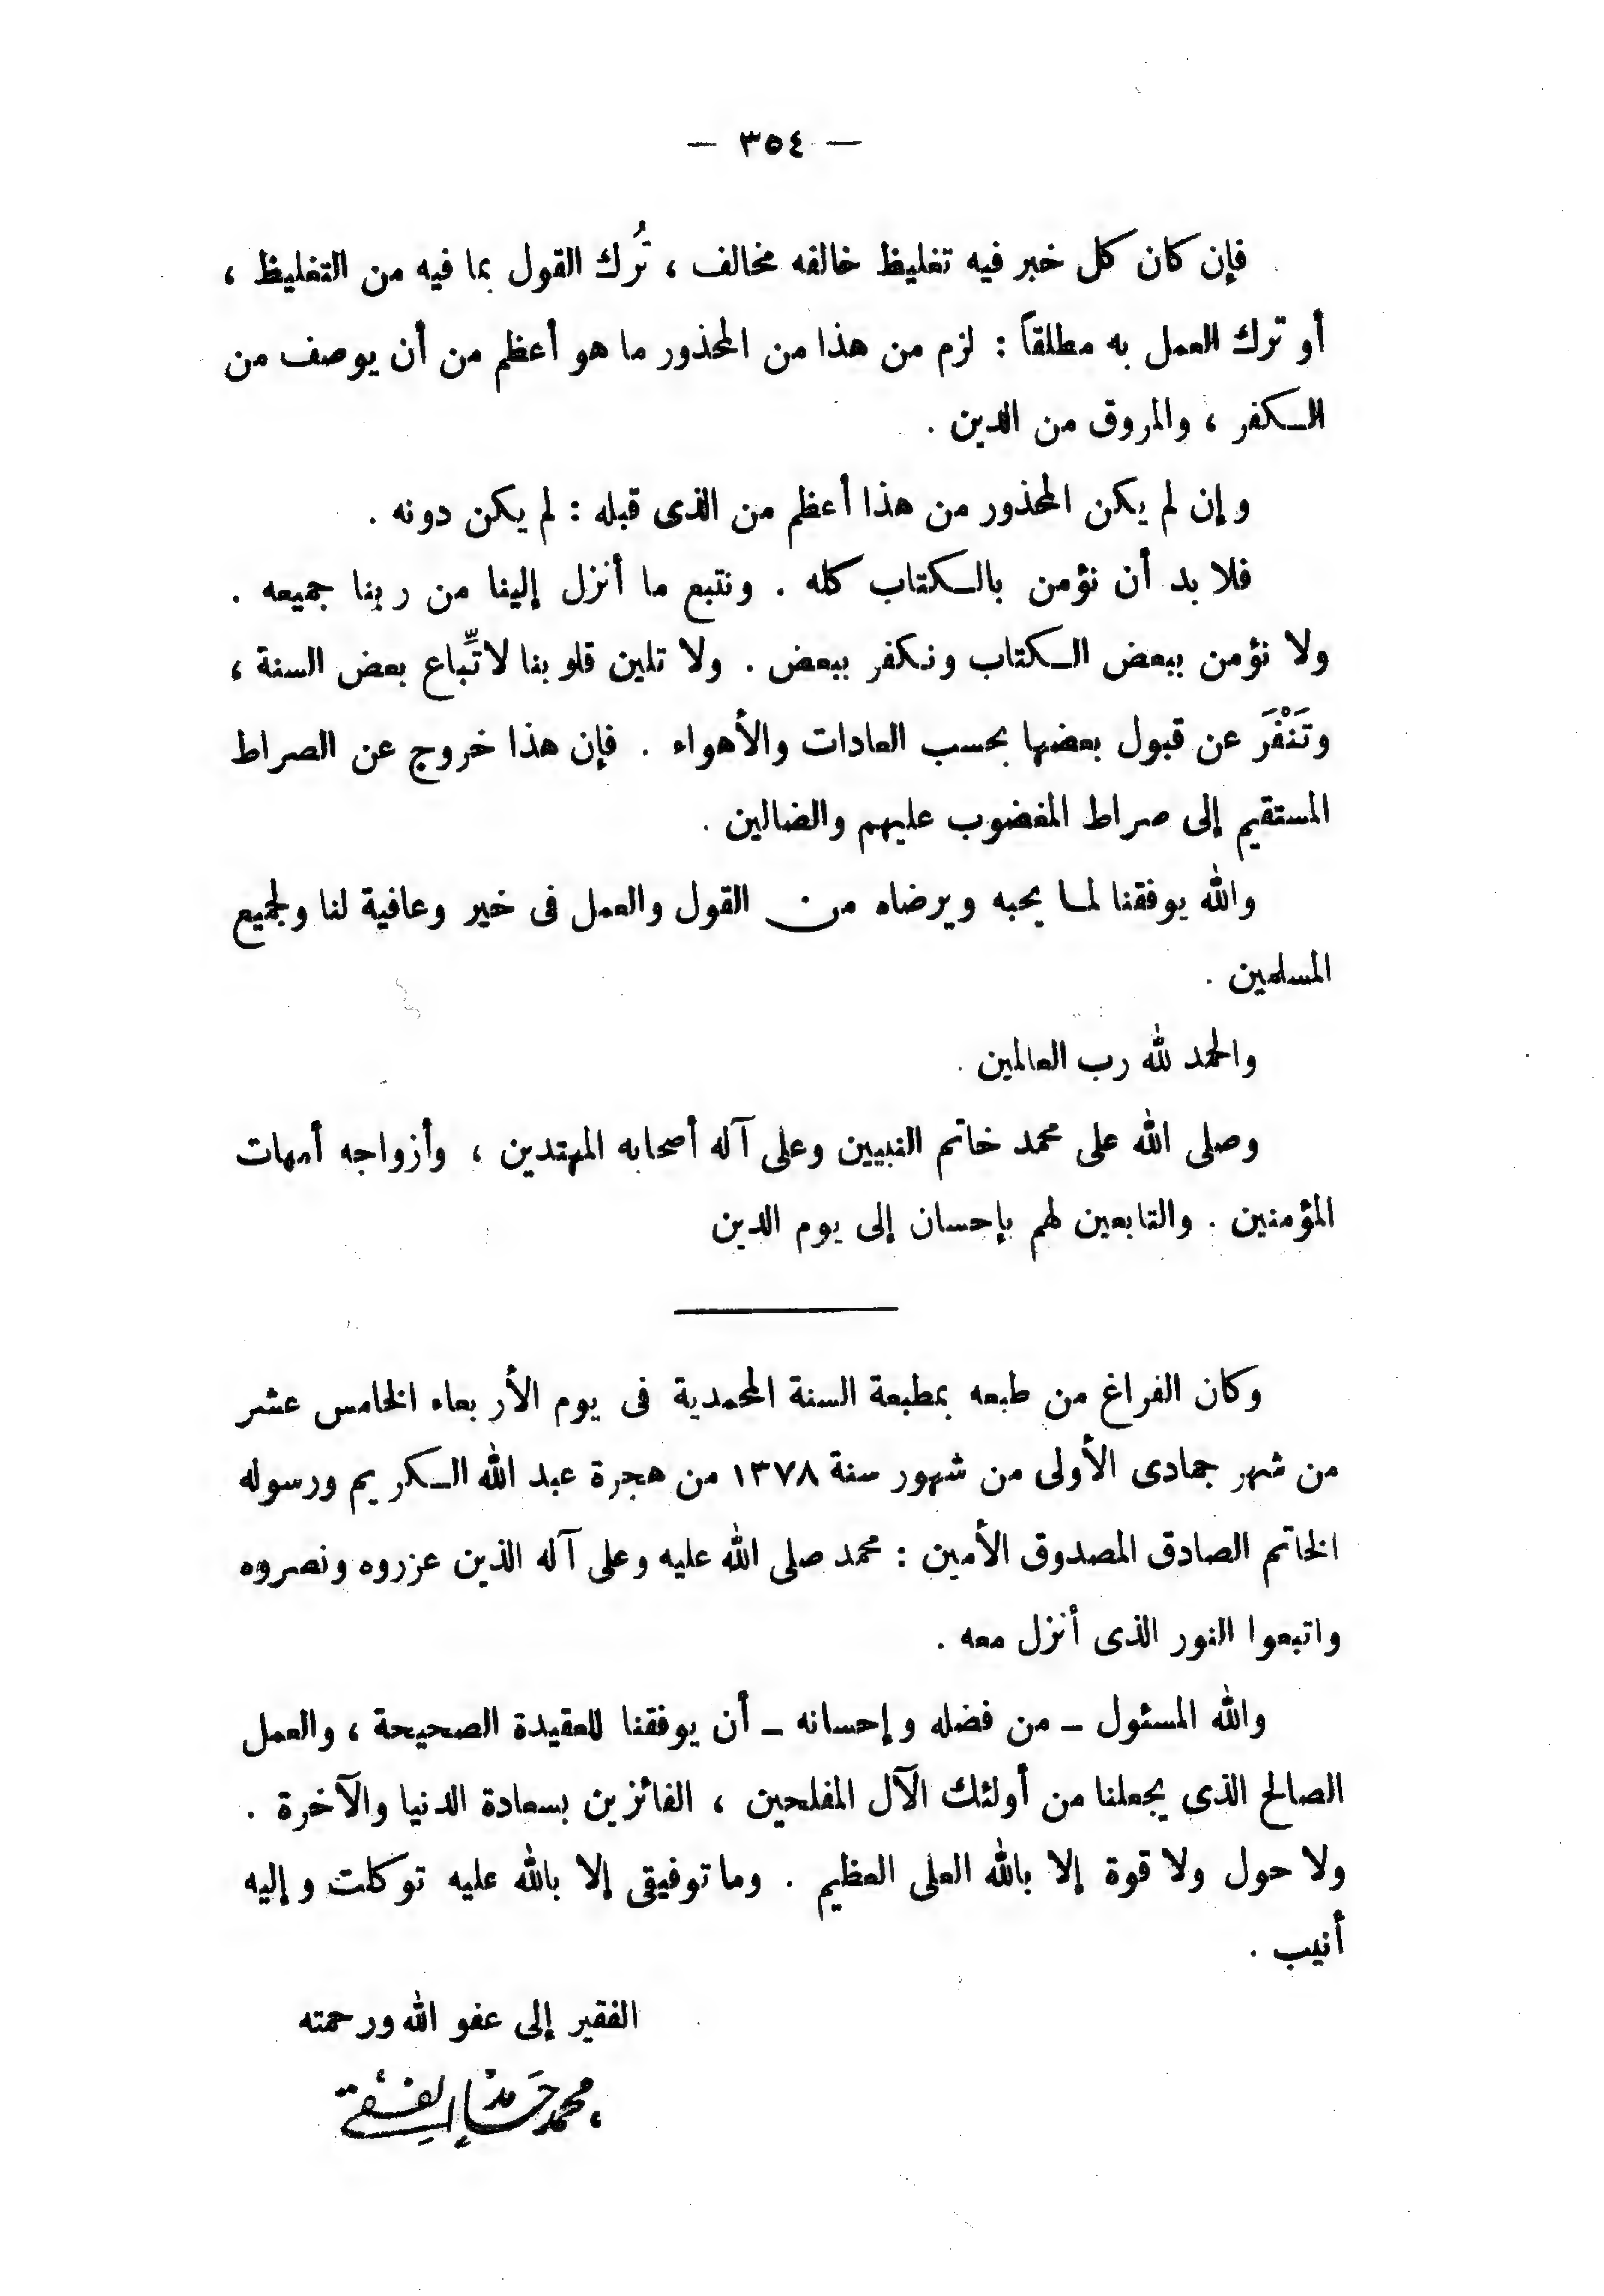 — ٣٥٤ —
فإن كان كل خبر فيه تغليظ خالفه مخالف ، تُرك القول بما فيه من التغليظ ،
أو ترك العمل به مطلقاً : لزم من هذا من المحذور ما هو أعظم من أن يوصف من
الكفر ، والمروق من الدين .
وإن لم يكن المحذور من هذا أعظم من الذى قبله : لم يكن دونه .
فلا بد أن نؤمن بالكتاب كله . ونتبع ما أنزل إلينا من ربنا جميعه .
ولا نؤمن ببعض الكتاب ونكفر ببعض . ولا تلين قلوبنا لاتِّباع بعض السنة ،
وتَنْفَر عن قبول بعضها بحسب العادات والأهواء . فإن هذا خروج عن الصراط
المستقيم إلى صراط المغضوب عليهم والضالين .
والله يوفقنا لما يحبه ويرضاه من القول والعمل فى خير وعافية لنا ولجميع
المسلمين .
والحمد لله رب العالمين .
وصلى الله على محمد خاتم النبيين وعلى آله أصحابه المهتدين ، وأزواجه أمهات
المؤمنين . والتابعين لهم بإحسان إلى يوم الدين
وكان الفراغ من طبعه بمطبعة السنة المحمدية فى يوم الأربعاء الخامس عشر
من شهر جمادى الأولى من شهور سنة ١٣٧٨ من هجرة عبد الله الكريم ورسوله
الخاتم الصادق المصدوق الأمين : محمد صلى الله عليه وعلى آله الذين عزروه ونصروه
واتبعوا النور الذى أنزل معه .
والله المسئول ـ من فضله وإحسانه ـ أن يوفقنا للعقيدة الصحيحة ، والعمل
الصالح الذى يجعلنا من أولئك الآل المفلحين ، الفائزين بسعادة الدنيا والآخرة .
ولا حول ولا قوة إلا بالله العلى العظيم . وما توفيقى إلا بالله عليه توكلت وإليه
أنيب .
الفقير إلى عفو الله ورحمته
محمد حامد الفقى